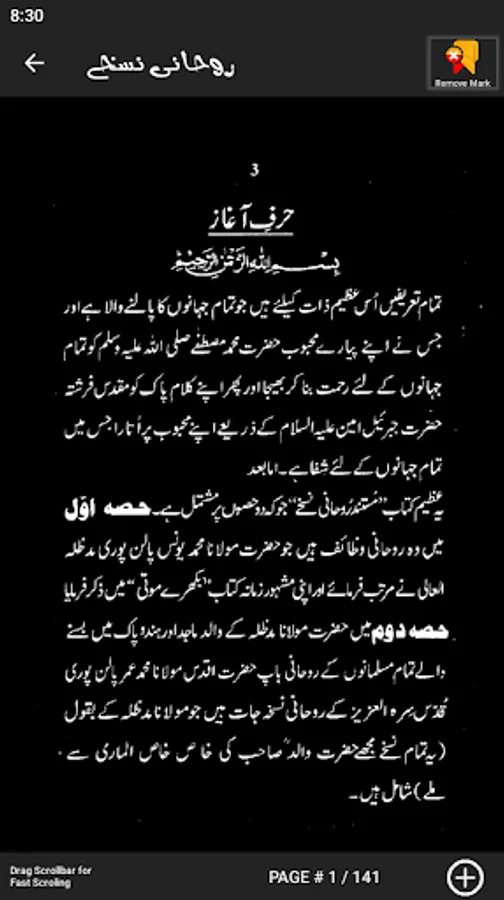 8:30
روحانی نسخے
Remove Mark
3
حرفِ آغاز
بسم اللہ الرحمٰن الرحیم
تمام تعریفیں اُس عظیم ذات کیلئے ہیں جو تمام جہانوں کا پالنے والا ہے اور
جس نے اپنے پیارے محبوب حضرت محمد مصطفےٰ صلی اللہ علیہ وسلم کو تمام
جہانوں کے لئے رحمت بنا کر بھیجا اور پھر اپنے کلام پاک کو مقدس فرشتہ
حضرت جبرئیل امین علیہ السلام کے ذریعے اپنے محبوب پر اُتارا جس میں
تمام جہانوں کے لئے شفا ہے۔ اما بعد
یہ عظیم کتاب ”مُستند رُوحانی نسخے“ جو کہ دو حصوں پر مشتمل ہے۔ حصہ اوّل
میں وہ روحانی وظائف ہیں جو حضرت مولانا محمد یونس پالن پوری مدظلہ
العالی نے مرتب فرمائے اور اپنی مشہور زمانہ کتاب ”بکھرے موتی“ میں ذکر فرمایا
حصہ دوم میں حضرت مولانا مدظلہ کے والد ماجد اور ہند و پاک میں بسنے
والے تمام مسلمانوں کے روحانی باپ حضرت اقدس مولانا محمد عمر پالن پوری
قُدّس سِرہ العزیز کے روحانی نسخہ جات ہیں جو مولانا مدظلہ کے بقول
(یہ تمام نسخے مجھے حضرت والدؒ صاحب کی خاص خاص الماری سے
ملے) شامل ہیں۔
Drag Scrollbar for
Fast Scroling
PAGE # 1 / 141